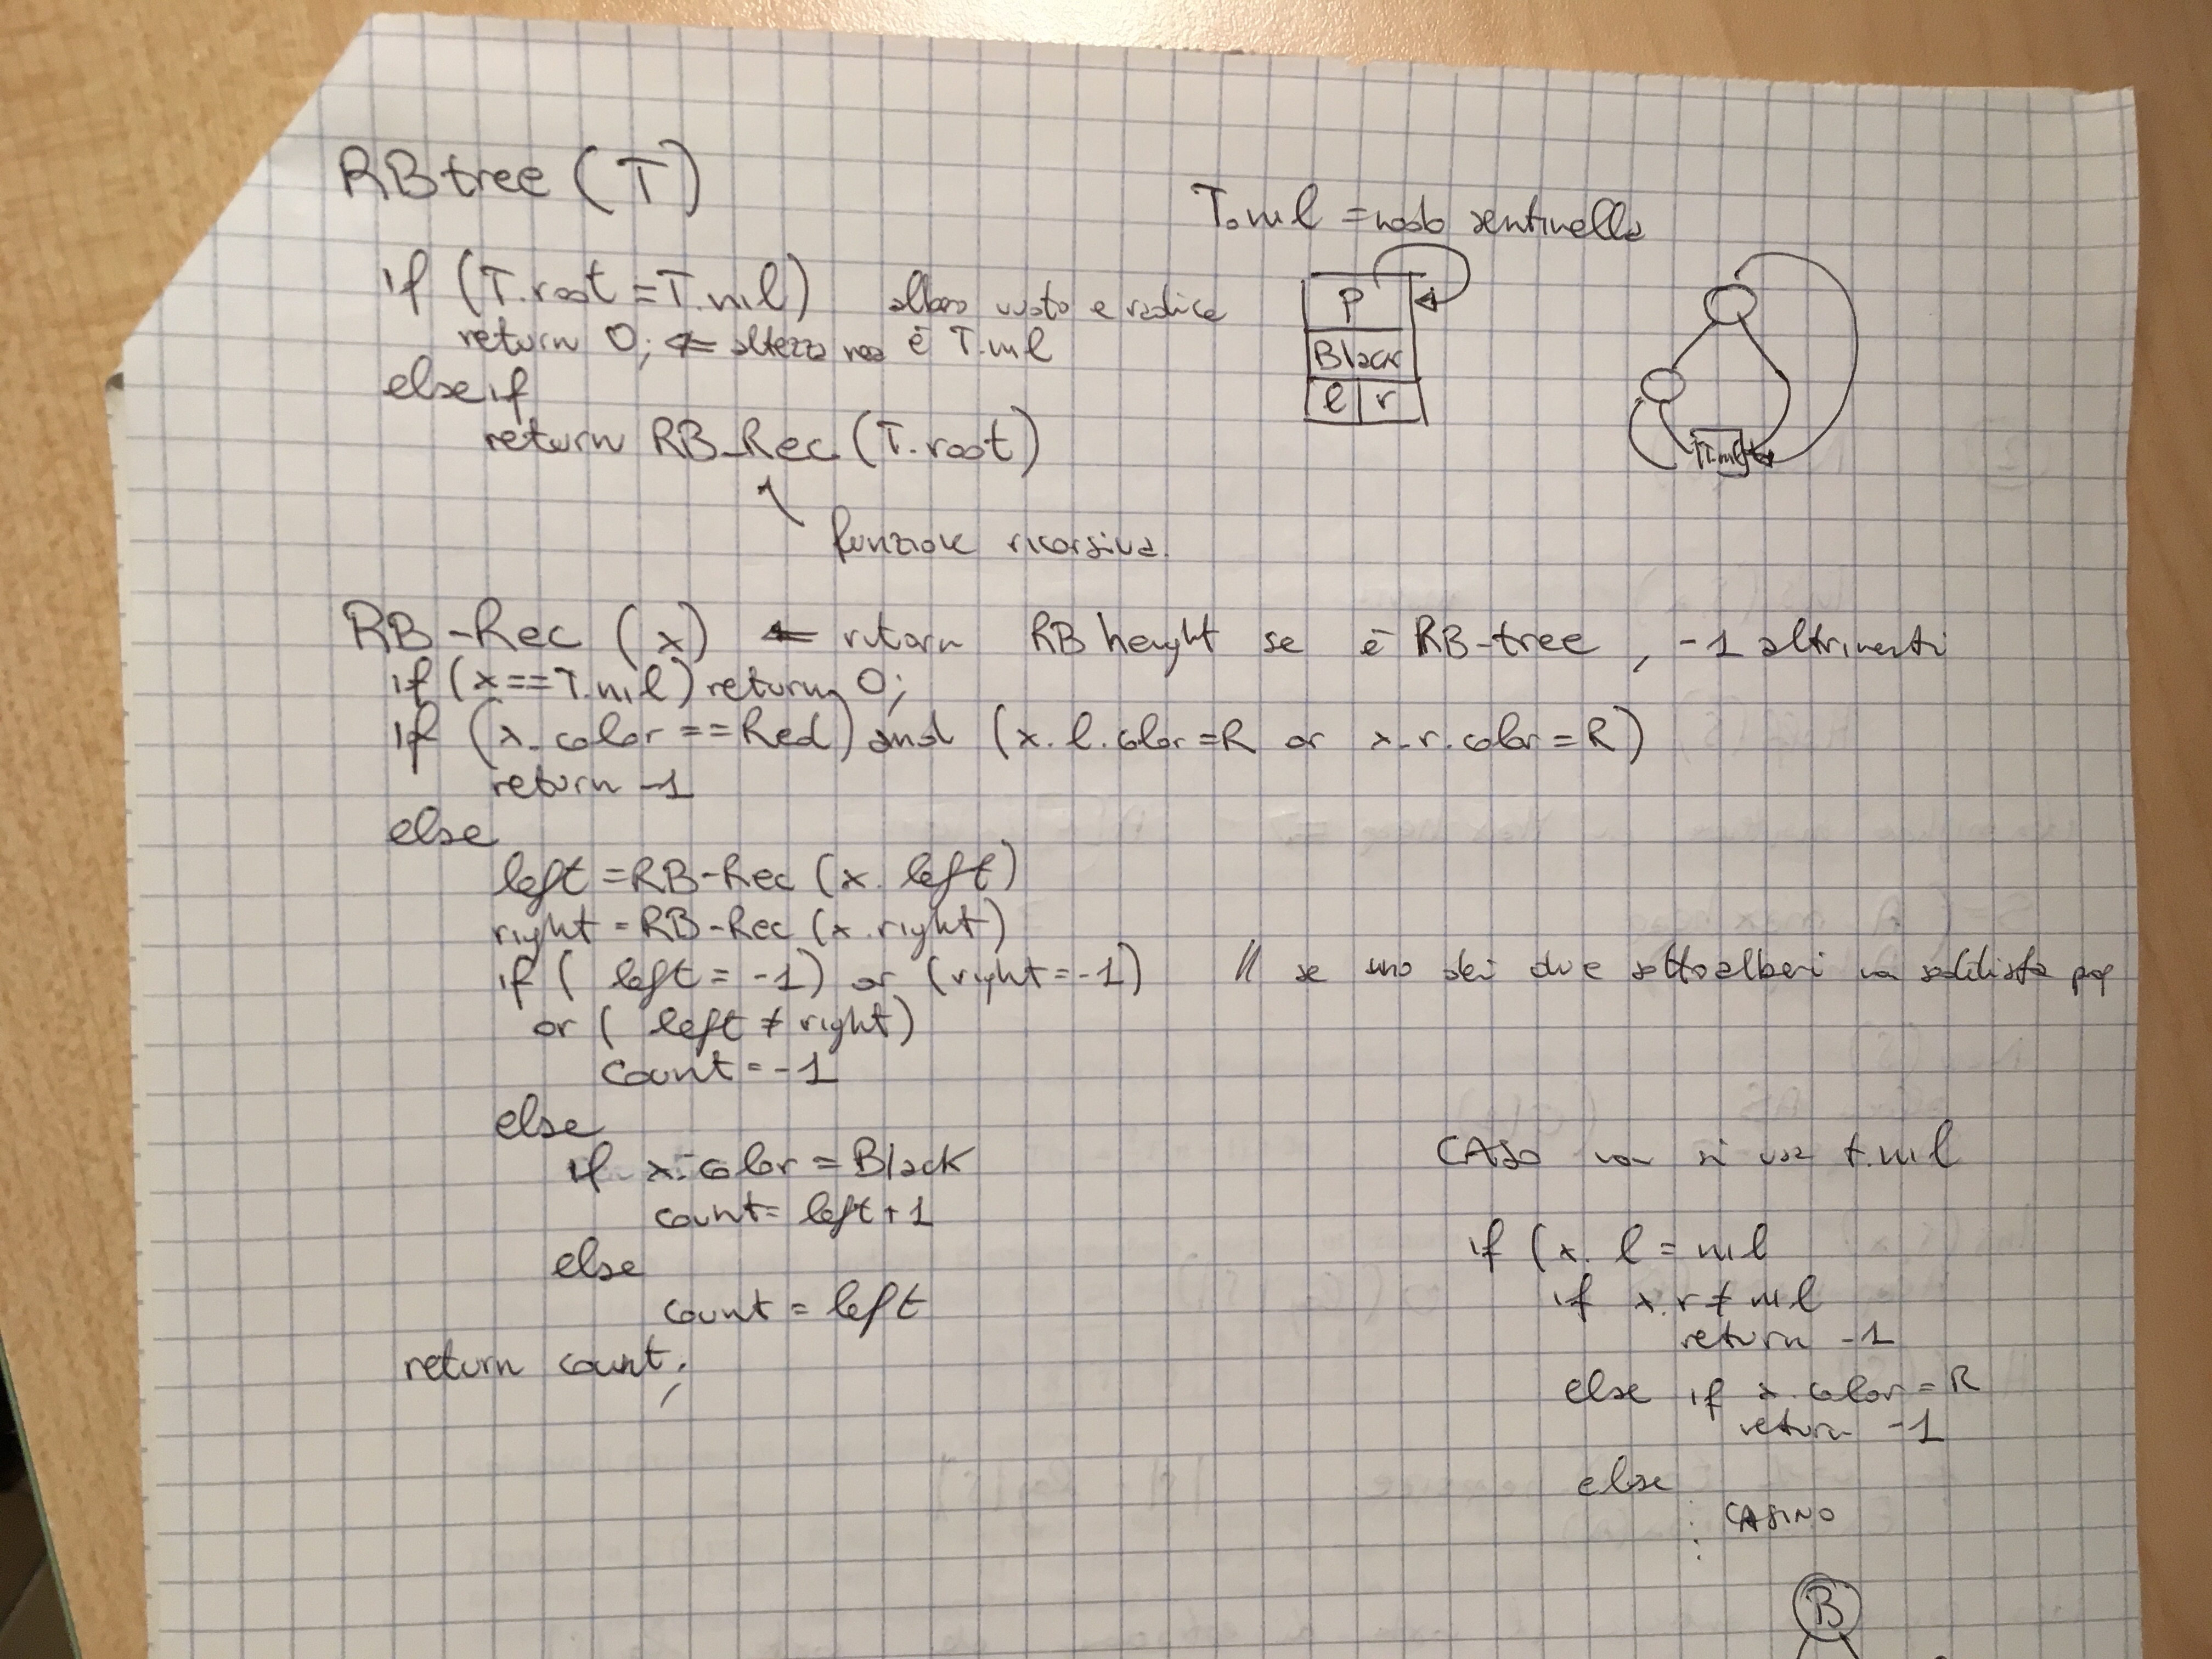 RBtree (T)
T.nil = nodo sentinella
if (T.root = T.nil) albero vuoto e radice
return 0; ⇐ altezza nera è T.nil
else if
return RB_Rec (T.root)
funzione ricorsiva.
P
Black
l r
T.nil
RB-Rec (x) ← ritorn RB height se è RB-tree, -1 altrimenti
if (x==T.nil) return 0;
if (x.color == Red) and (x.l.color=R or x.r.color=R)
return -1
else
left = RB-Rec (x.left)
right = RB-Rec (x.right)
if ( left = -1) or (right=-1) // se uno dei due sottoalberi non soddisfa prop
or ( left ≠ right)
count = -1
else
if x.color = Black
count= left+1
else
count = left
return count;
CASO non si usa t.nil
if (x. l = nil
if x.r ≠ nil
return -1
else if x.color = R
return -1
else
: CASINO
:
B